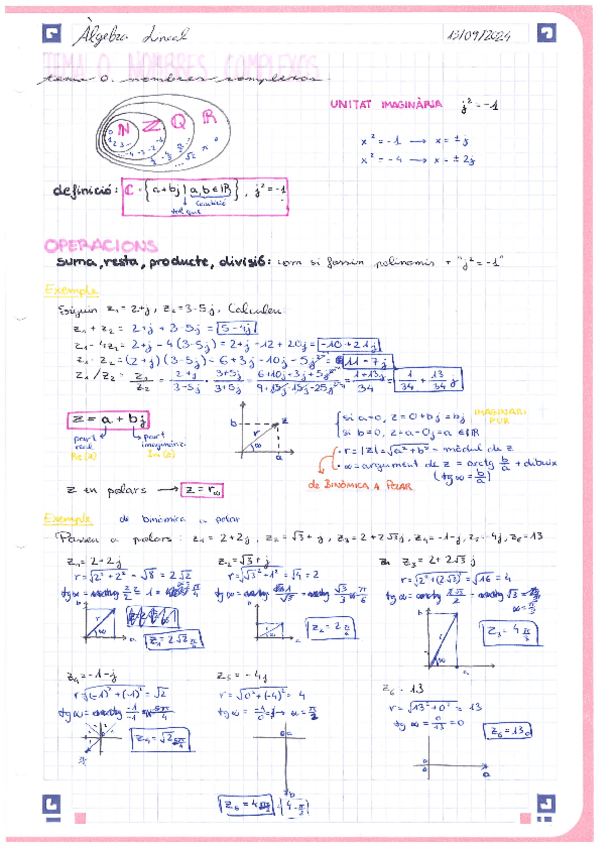 Àlgebra Lineal 13/09/2024
TEMA 0. NOMBRES COMPLEXOS
tema 0. nombres complexos
N Z Q R
UNITAT IMAGINÀRIA j² = -1
x² = -1 → x = ± j
x² = -4 → x = ± 2j
definició: ℂ = { a+bj | a,b ∈ ℝ }, j² = -1
tal que
OPERACIONS
suma, resta, producte, divisió: com si fossin polinomis + "j² = -1"
Exemple
Siguin z₁ = 2+j, z₂ = 3-5j, Calculeu:
z₁ + z₂ = 2+j + 3-5j = 5-4j
z₁ - 4z₂ = 2+j - 4(3-5j) = 2+j -12 + 20j = -10 + 21j
z₁ · z₂ = (2+j)(3-5j) = 6+3j -10j -5j² = 11-7j
z₁/z₂ = z₁/z₂ = 2+j/3-5j · 3+5j/3+5j = 6+10j+3j+5j²/9+15j-15j-25j² = 1+13j/34 = 1/34 + 13/34 j
z = a + bj
part real
Re(z)
part imaginària
Im(z)
b r z
a
si a=0, z=0+bj=bj IMAGINARI PUR
si b=0, z=a+0j=a ∈ ℝ
· r = |z| = √a²+b² - mòdul de z
· α = argument de z = arctg b/a + dibuix
(tg α = b/a)
de BINÒMICA A POLAR
z en polars → z = r α
Exemple de binòmica a polar
Passeu a polars: z₁ = 2+2j, z₂ = √3+j, z₃ = 2+2√3j, z₄ = -1-j, z₅ = -4j, z₆ = 13
z₁ = 2+2j
r = √2²+2² = √8 = 2√2
z₁ = 2√2 π/4
z₂ = √3+j
r = √√3²+1² = √4 = 2
z₂ = 2 π/6
z₃ = 2+2√3j
r = √2²+(2√3)² = √16 = 4
α = π/3
z₃ = 4 π/3
z₄ = -1-j
r = √(-1)²+(-1)² = √2
z₄ = √2 5π/4
z₅ = -4j
r = √0²+(-4)² = 4
z₆ = 13
r = √13²+0² = 13
tg α = 0/13 = 0
z₆ = 13 0